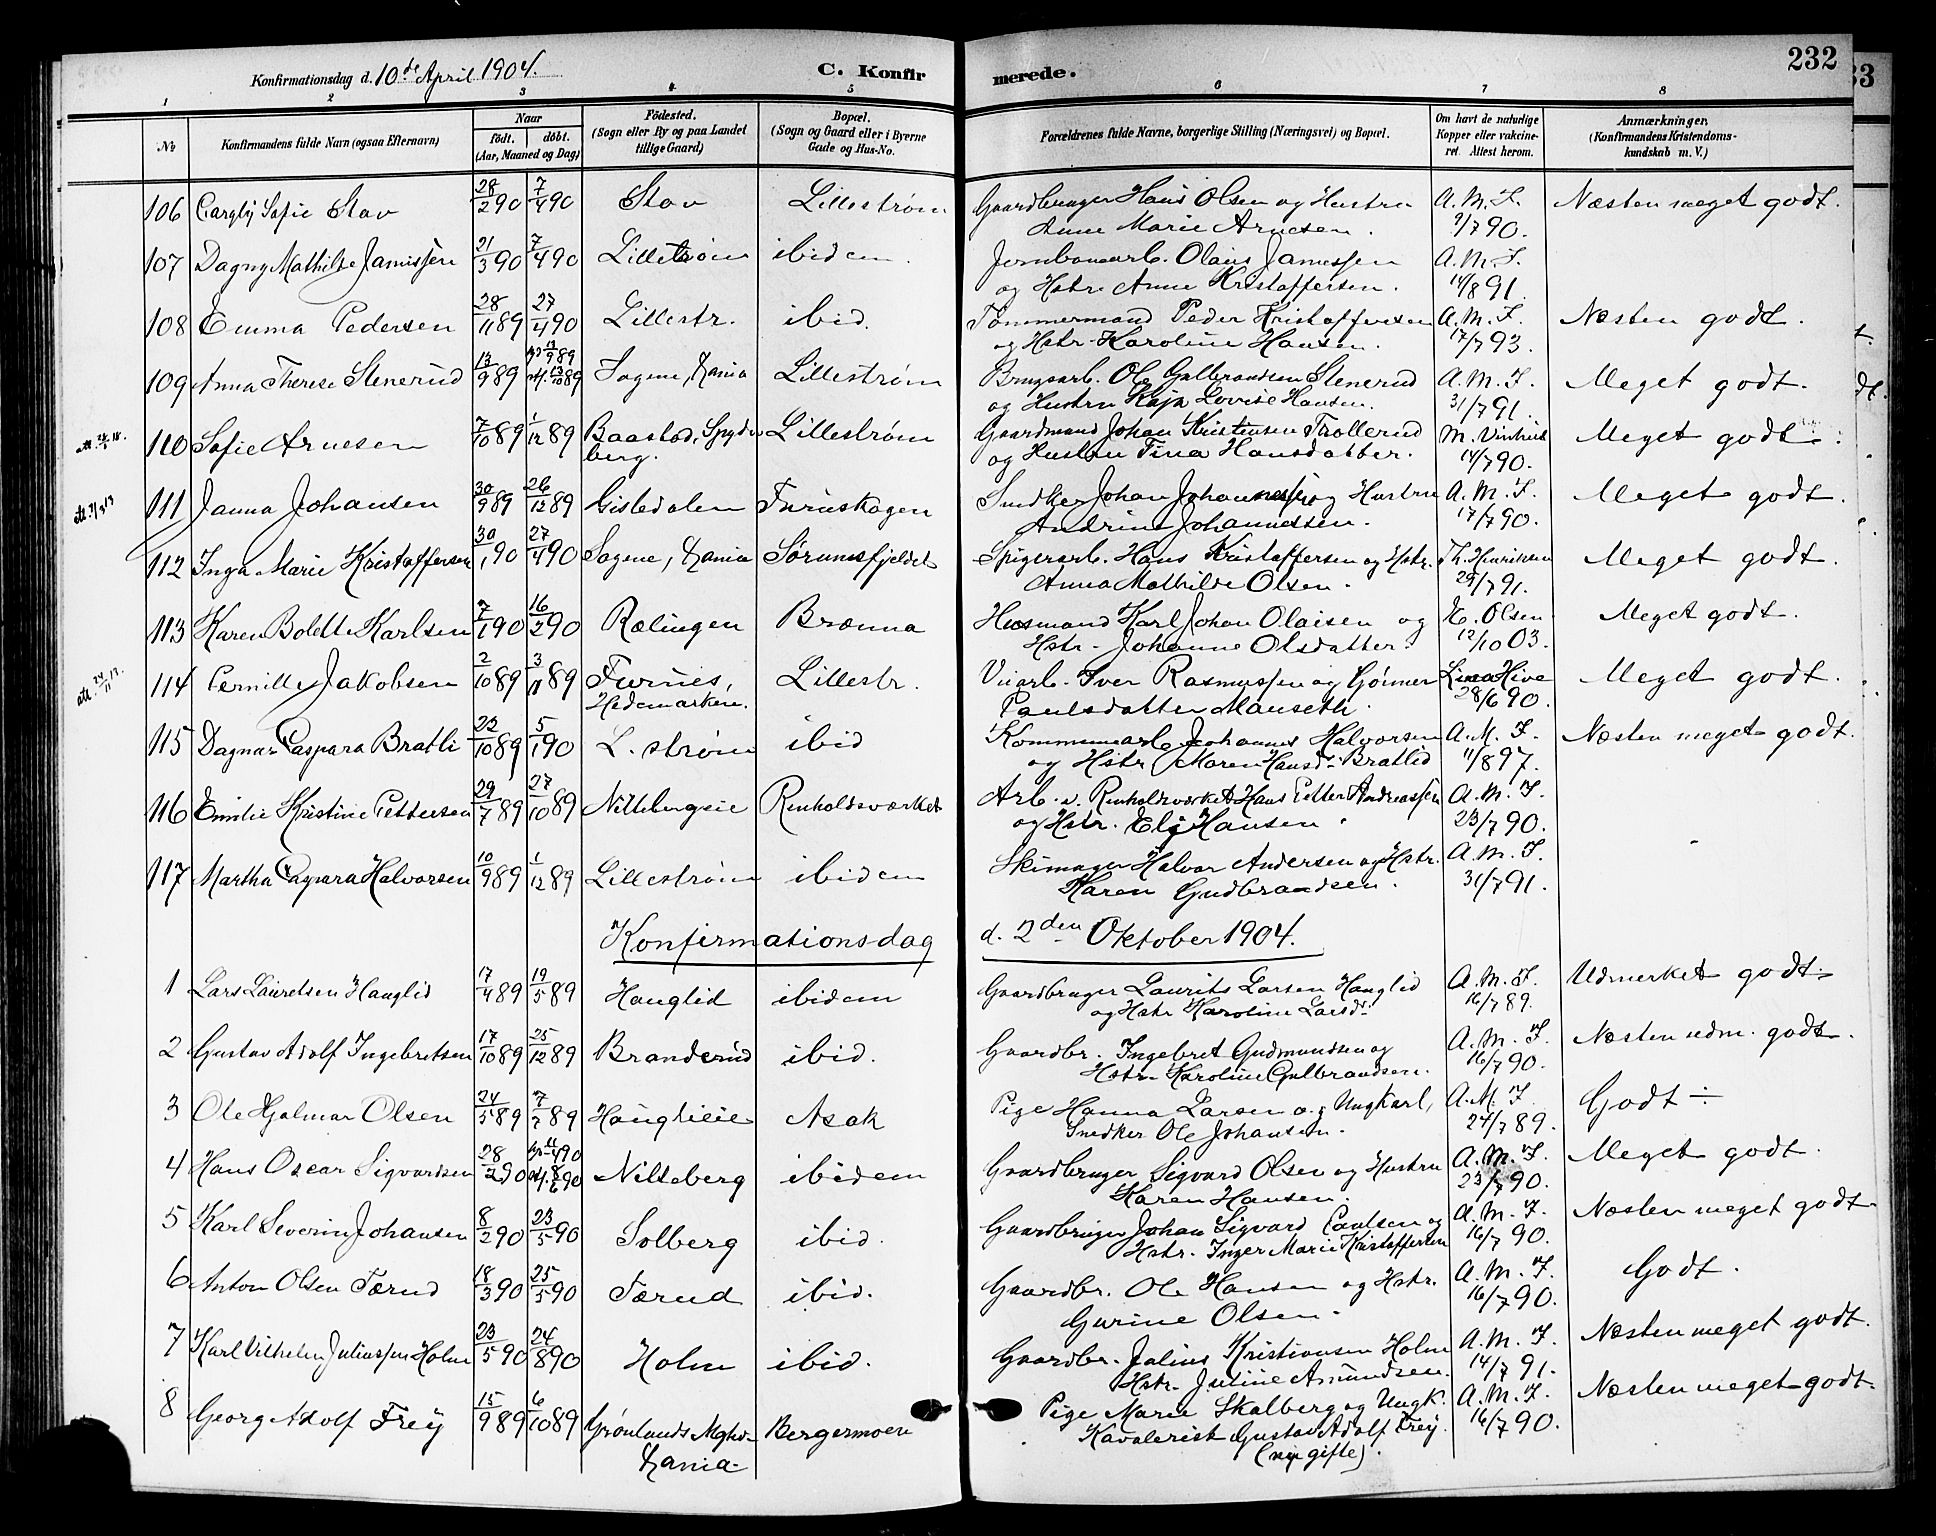 232
Konfirmationsdag d. 10de April 1904. C. Konfirmerede.
1 2 3 4 5 6 7 8
No Konfirmandens fulde Navn (ogsaa Efternavn) Naar født. døbt. (Aar, Maaned og Dag) Fødested. (Sogn eller By og paa Landet tillige Gaard) Bopæl. (Sogn og Gaard eller i Byerne Gade og Hus-No. Forældrenes fulde Navne, borgerlige Stilling (Næringsvei) og Bopæl. Om havt de naturlige Kopper eller vakcineret. Attest herom. Anmærkninger. (Konfirmandens Kristendomskundskab m. V.)
106 Sofie Stav 28/2 90 7/4 90 Stav Lillestrøm Gaardbruger Hans Olsen og Hustru A. M. F. Næsten meget godt.
Anne Marie Arnesen. 9/7 90.
107 Dagny Mathilde Jamissen 21/3 90 7/4 90 Lillestrøm ibidem. Jernbanearb. Olaus Jamissen A. M. F.
og Hstr. Anne Kristoffersen. 14/8 91.
108 Emma Pedersen 28/11 89 27/4 90 Lillestr. ibid. Tømmermand Peder Kristoffersen A. M. F. Næsten godt.
og Hstr. Karoline Hansen. 17/7 93.
109 Anna Therese Stenerud 13/9 89 13/9 89 13/10 89 Sagene, Xania Lillestrøm Brugsarb. Ole Gulbrandsen Stenerud A. M. F. Meget godt.
og Hustru Kaja Lovise Hansen. 31/7 91.
110 Sofie Arnesen 7/10 89 1/12 89 Baastad, Spydeberg. Lillestrøm Gaardmand Johan Kristensen Trollerud M. Meget godt.
og Hustru Tina Hansdatter. 14/7 90.
111 Janna Johansen 30/9 89 26/12 89 Gisledalen Furuskogen Snedker Johan Johannessen og Hustru A. M. F. Meget godt.
Andrine Johannessen. 17/7 90.
112 Inga Marie Kristoffersen 30/1 90 27/4 90 Sagene, Xania Sørumsfjeldet Spigerarb. Hans Kristoffersen og Hstr. Th. Henriksen Meget godt.
Anna Mathilde Olsen. 29/7 91.
113 Karen Bolette Karlsen 7/1 90 16/2 90 Rælingen Brænna Husmand Karl Johan Olaisen og E. Olsen Meget godt.
Hstr. Johanne Olsdatter. 12/10 03.
114 Pernille Jakobsen 2/10 89 3/11 89 Furnes, Hedemarken. Lillestr. Iver Rasmussen og Gunner Meget godt.
Paulsdatter Mauseth. 28/6 90.
115 Dagnar Caspara Bratli 22/10 89 5/1 90 L. strøm ibid Kommunearb. Johannes Halvorsen A. M. F. Næsten meget godt.
og Hstr. Maren Hansd. Bratlid 11/8 97.
116 Emilie Kristine Pettersen 29/7 89 27/10 89 Nittebergeie Renholdsværket Arb. v. Renholdsværket Hans Petter Andreassen A. M. F.
og Hstr. Eli Hansen. 23/7 90.
117 Martha Caspara Halvorsen 10/9 89 1/12 89 Lillestrøm ibidem Skimager Halvor Andersen og Hstr. A. M. F.
Karen Gudbrandsen. 31/7 91.
Konfirmationsdag d. 2den Oktober 1904.
1 Lars Lauretsen Hauglid 17/4 89 19/5 89 Hauglid ibidem Gaardbruger Laurits Larsen Hauglid A. M. F. Udmerket godt.
og Hstr. Karoline Larsd. 16/7 89.
2 Gustav Adolf Ingebretsen 17/10 89 25/12 89 Branderud ibid. Gaardbr. Ingebret Gudmundsen og A. M. F. Næsten udm. godt.
Hstr. Karoline Gulbrandsen. 16/7 90.
3 Ole Hjalmar Olsen 24/5 89 7/7 89 Hauglieie Asak Pige Hanna Larsen og Ungkarl, A. M. F. Godt ÷
Snedker Ole Johansen. 24/7 89.
4 Hans Oscar Sigvardsen 28/2 90 11/4 90 8/6 90 Nitteberg ibidem Gaardbruger Sigvard Olsen og Hustru A. M. F. Meget godt.
Karen Hansen. 23/7 90.
5 Karl Severin Johansen 8/2 90 23/5 90 Solberg ibid. Gaardbruger Johan Sigvard Paulsen og A. M. F. Næsten meget godt
Hstr. Inger Marie Kristoffersen 16/7 90.
6 Anton Olsen Tærud 18/3 90 25/5 90 Tærud ibid. Gaardbr. Ole Hansen og Hstr. A. M. F. Godt.
Gurine Olsen. 16/7 90.
7 Karl Vilhelm Juliussen Holm 23/5 90 24/8 90 Holm ibid. Gaardbr. Julius Kristiansen Holm A. M. F. Næsten meget godt.
Hstr. Justine Amundsen. 14/7 91.
8 Georg Adolf Frey 15/9 89 6/10 89 Grønlands Mghd. Xania. Bergermoen Pige Marie Skalberg og Ungk. A. M. F. Næsten meget godt.
Kavalerist Gustav Adolf Frey. 16/7 90.
(nu gifte).